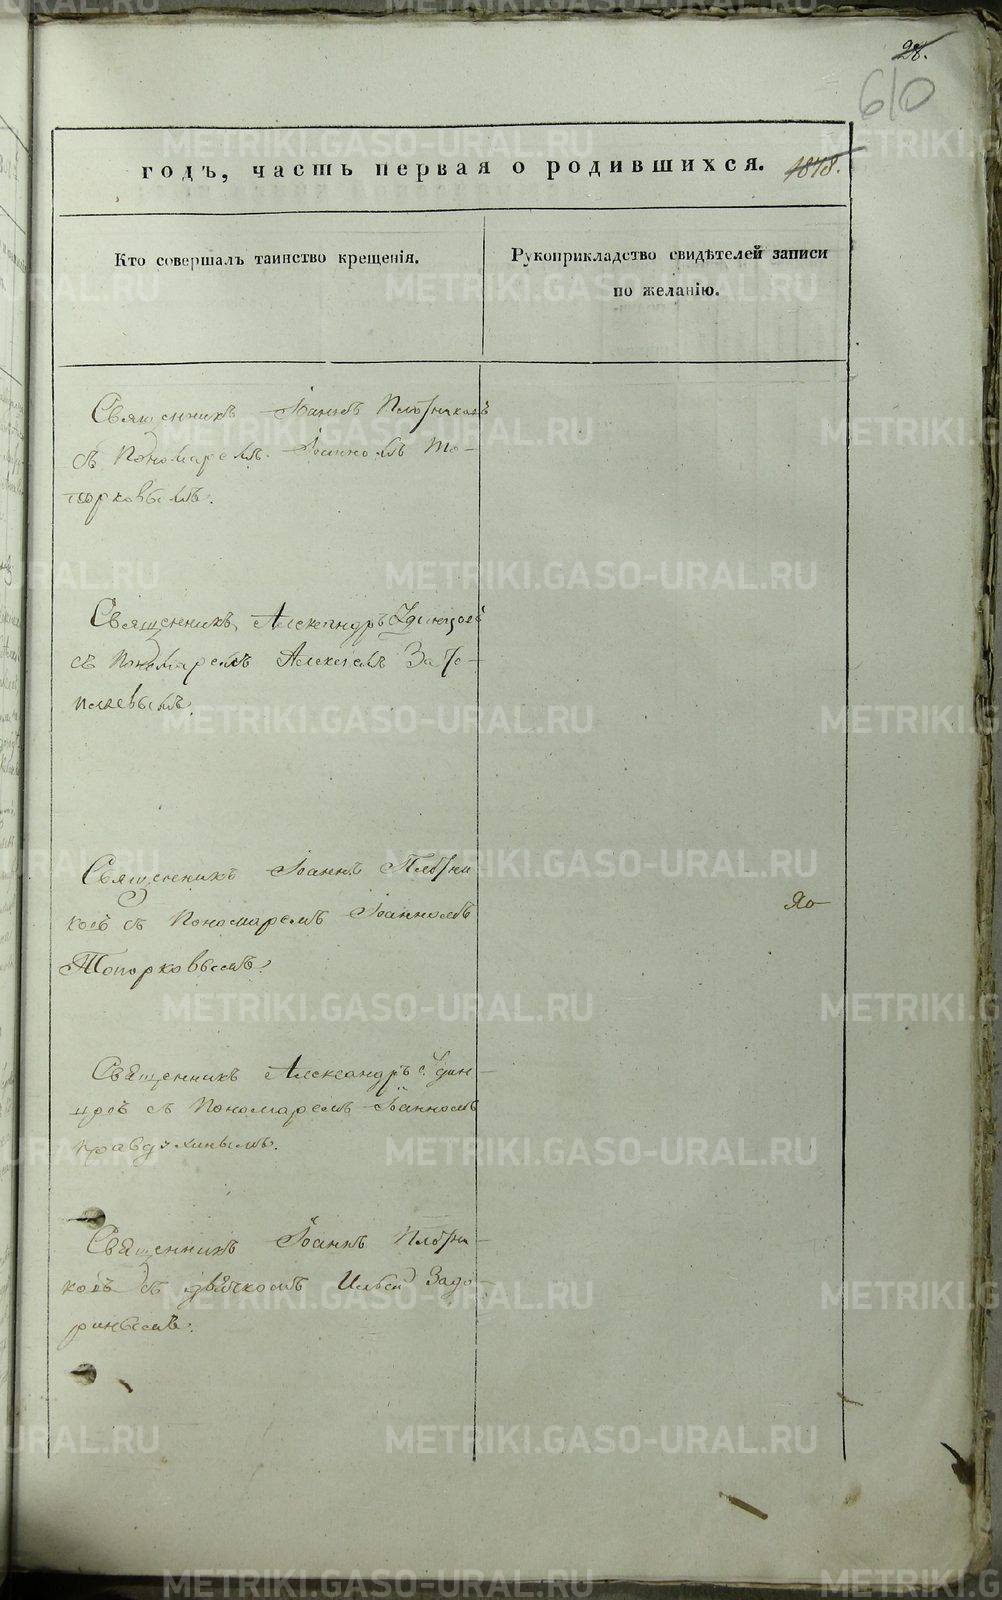 28.
610
годъ, часть первая о родившихся. 1848.
Кто совершалъ таинство крещенія.
Рукоприкладство свидѣтелей записи
по желанію.
Священникъ Іоаннъ Плотниковъ
съ Пономаремъ Іоанномъ То-
порковымъ.
Священникъ Александръ Удинцовъ
съ Пономаремъ Алексѣемъ Зато-
пляевымъ.
Священникъ Іоаннъ Плотни
ковъ съ Пономаремъ Іоанномъ
Топорковымъ.
Священникъ Александръ Удин-
цовъ съ Пономаремъ Іоанномъ
Правдухинымъ.
Священникъ Іоаннъ Плотни-
ковъ съ дьячкомъ Ильей Задо-
ринымъ.
METRIKI.GASO-URAL.RU